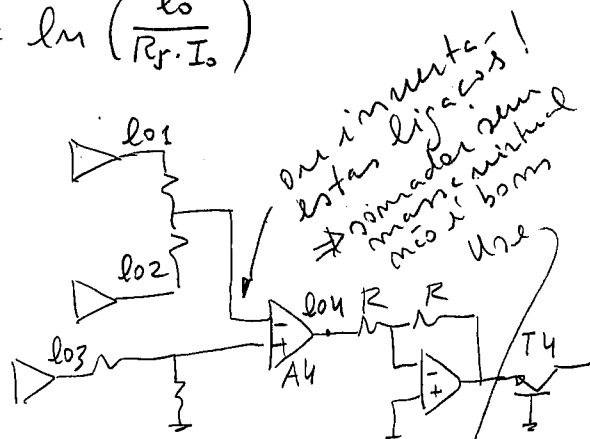 = ln ( lo / Rf . Io )
ou inverta-
estas ligaços!
⇒ somador sem
massa virtual
não é bom
Use
lo1
lo2
lo3
lo4
R
R
T4
A4
-
+
-
+